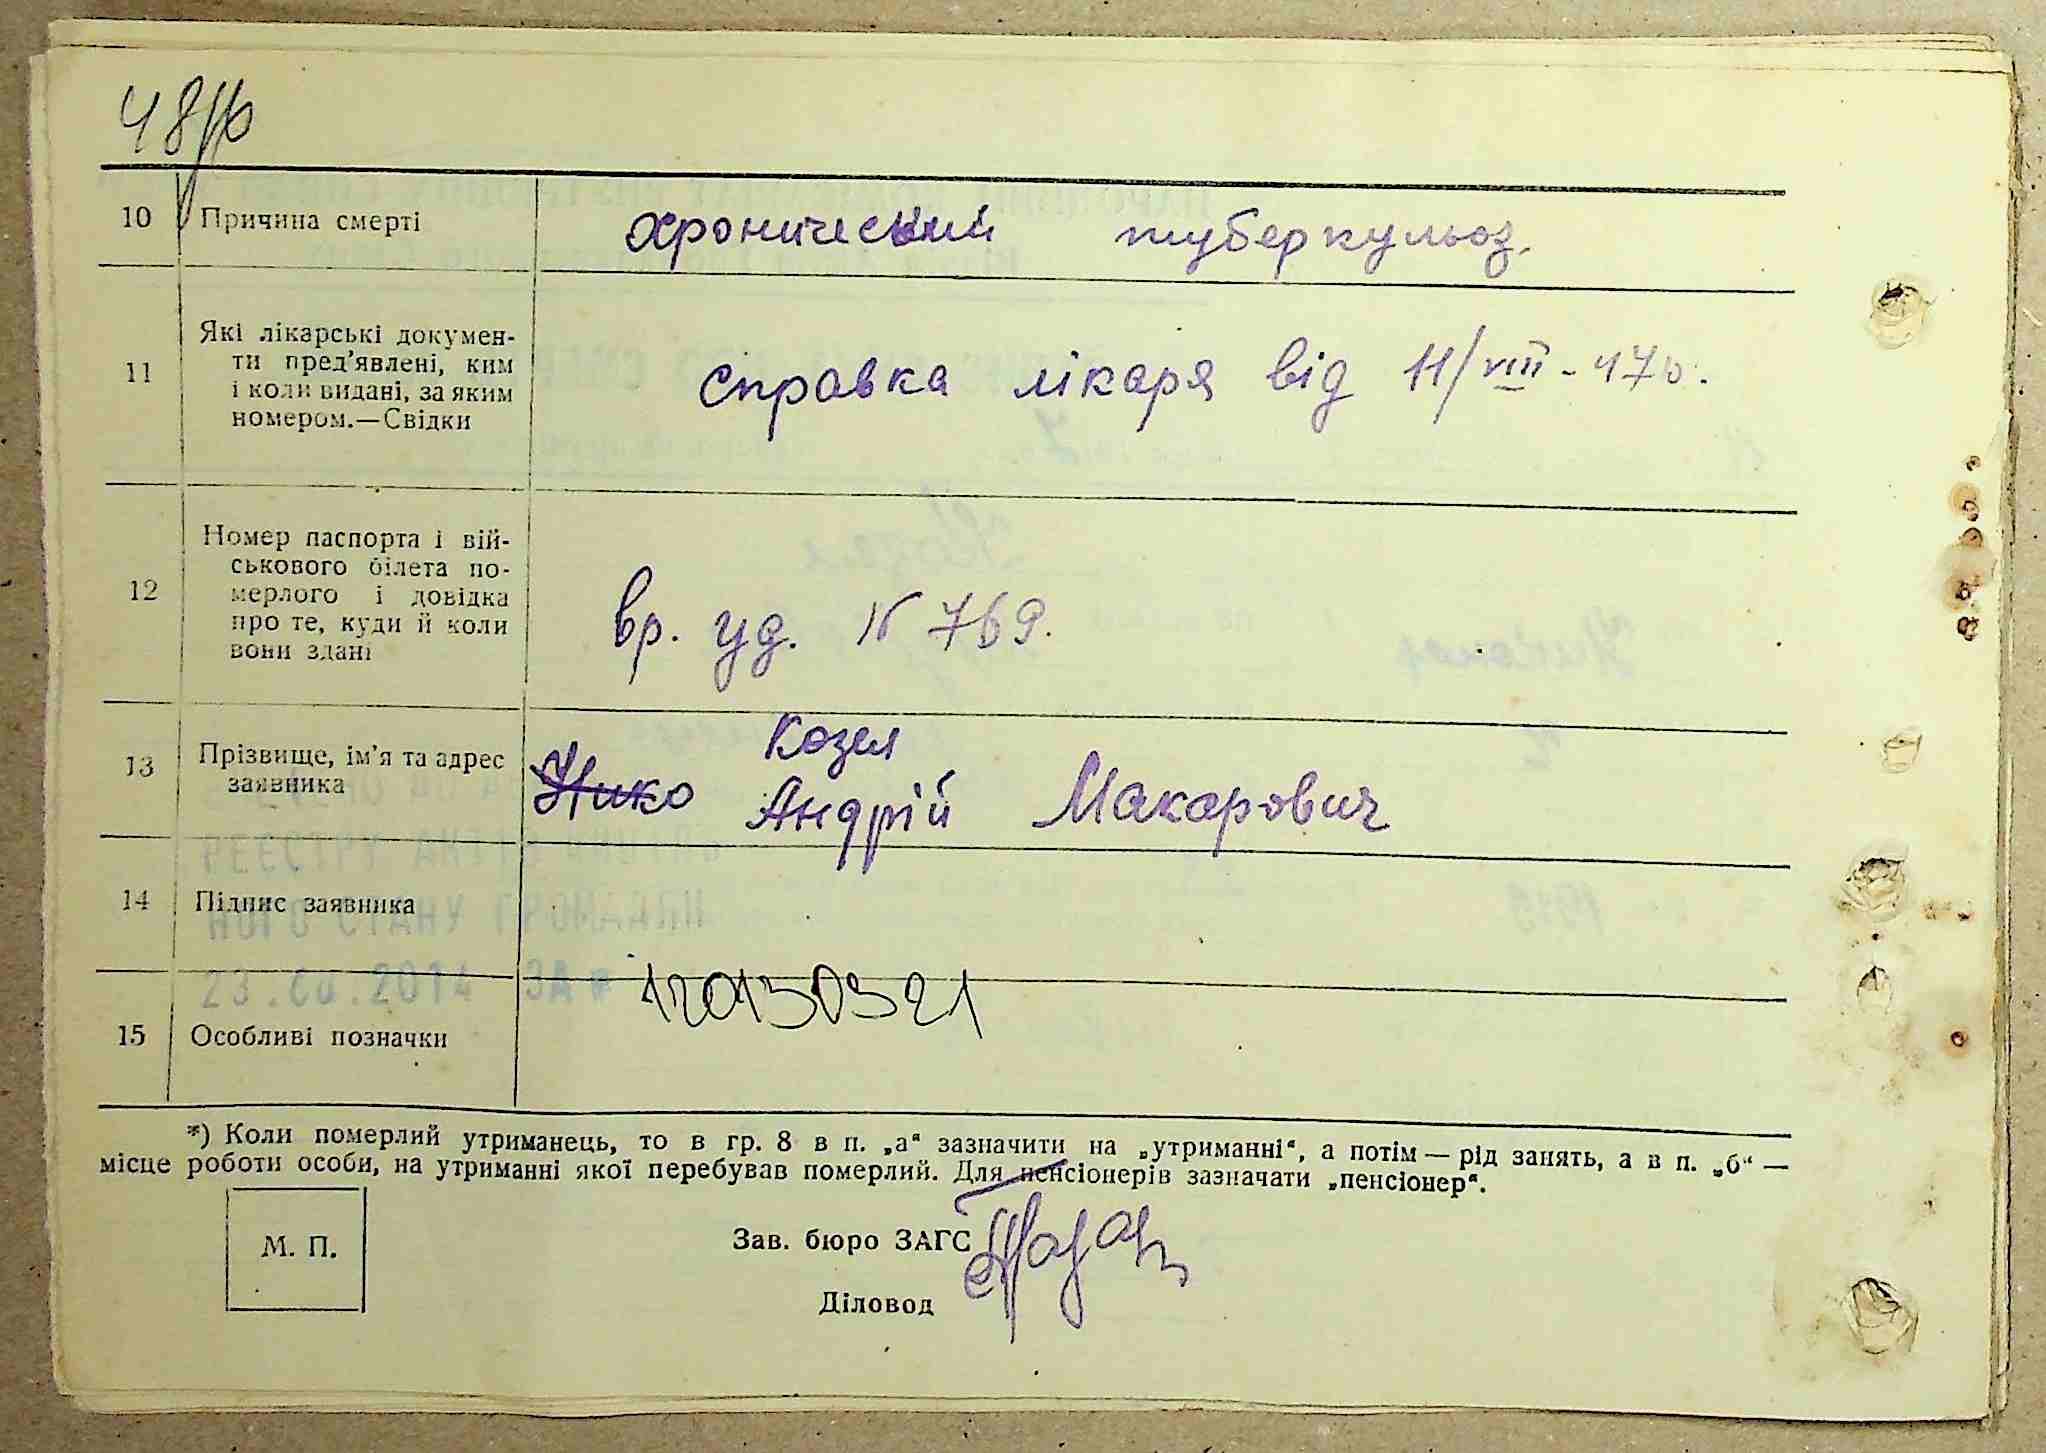 48
10 Причина смерті хронический туберкульоз.
11 Які лікарські докумен-
ти пред'явлені, ким
і коли видані, за яким
номером.—Свідки
справка лікаря від 11/VIII-47р.
12 Номер паспорта і вій-
ськового білета по-
мерлого і довідка
про те, куди й коли
вони здані
вр. уд. № 769.
13 Прізвище, ім'я та адрес
заявника
Козел
Нико Андрій Макарович
РЕЄСТРІ АКТІВ
НОГО СТАНУ ГРОМАДЯН
14 Підпис заявника
23. .2014 ЗА №
120130321
15 Особливі позначки
*) Коли померлий утриманець, то в гр. 8 в п. „а“ зазначити на „утриманні“, а потім — рід занять, а в п. „б“ —
місце роботи особи, на утриманні якої перебував померлий. Для пенсіонерів зазначати „пенсіонер“.
М. П.
Зав. бюро ЗАГС
Діловод